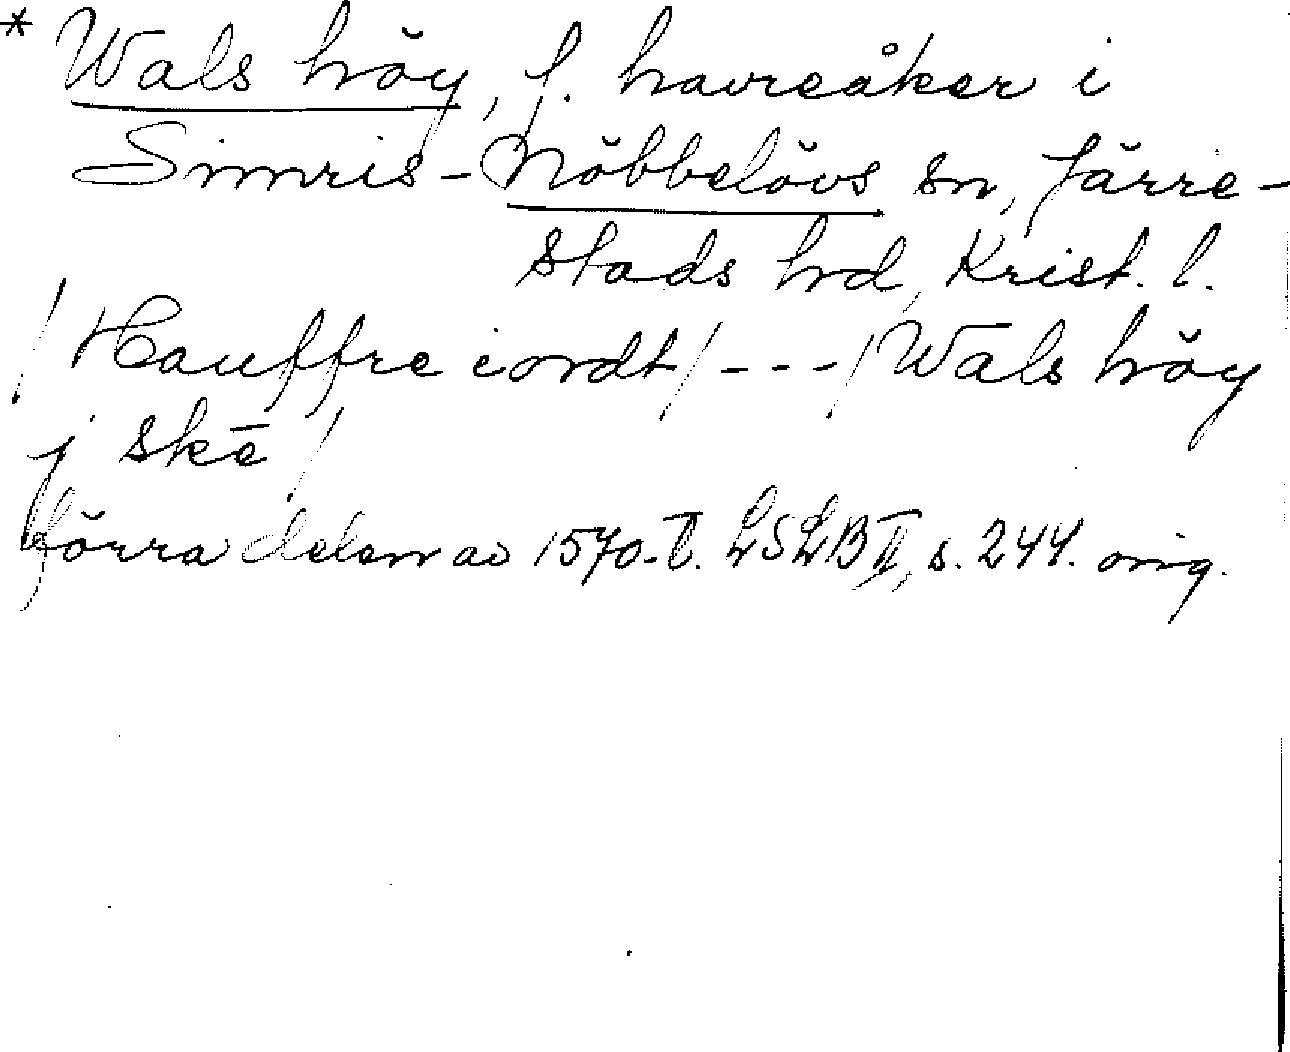 * Wals höy, f. havreåker i
Simris-Nöbbelövs sn, Järre-
stads hrd, Krist. l.
/ Hauffre iordt / - - - / Wals höy
j skē /
förra delen av 1570-t. LSLB II, s. 244. orig.